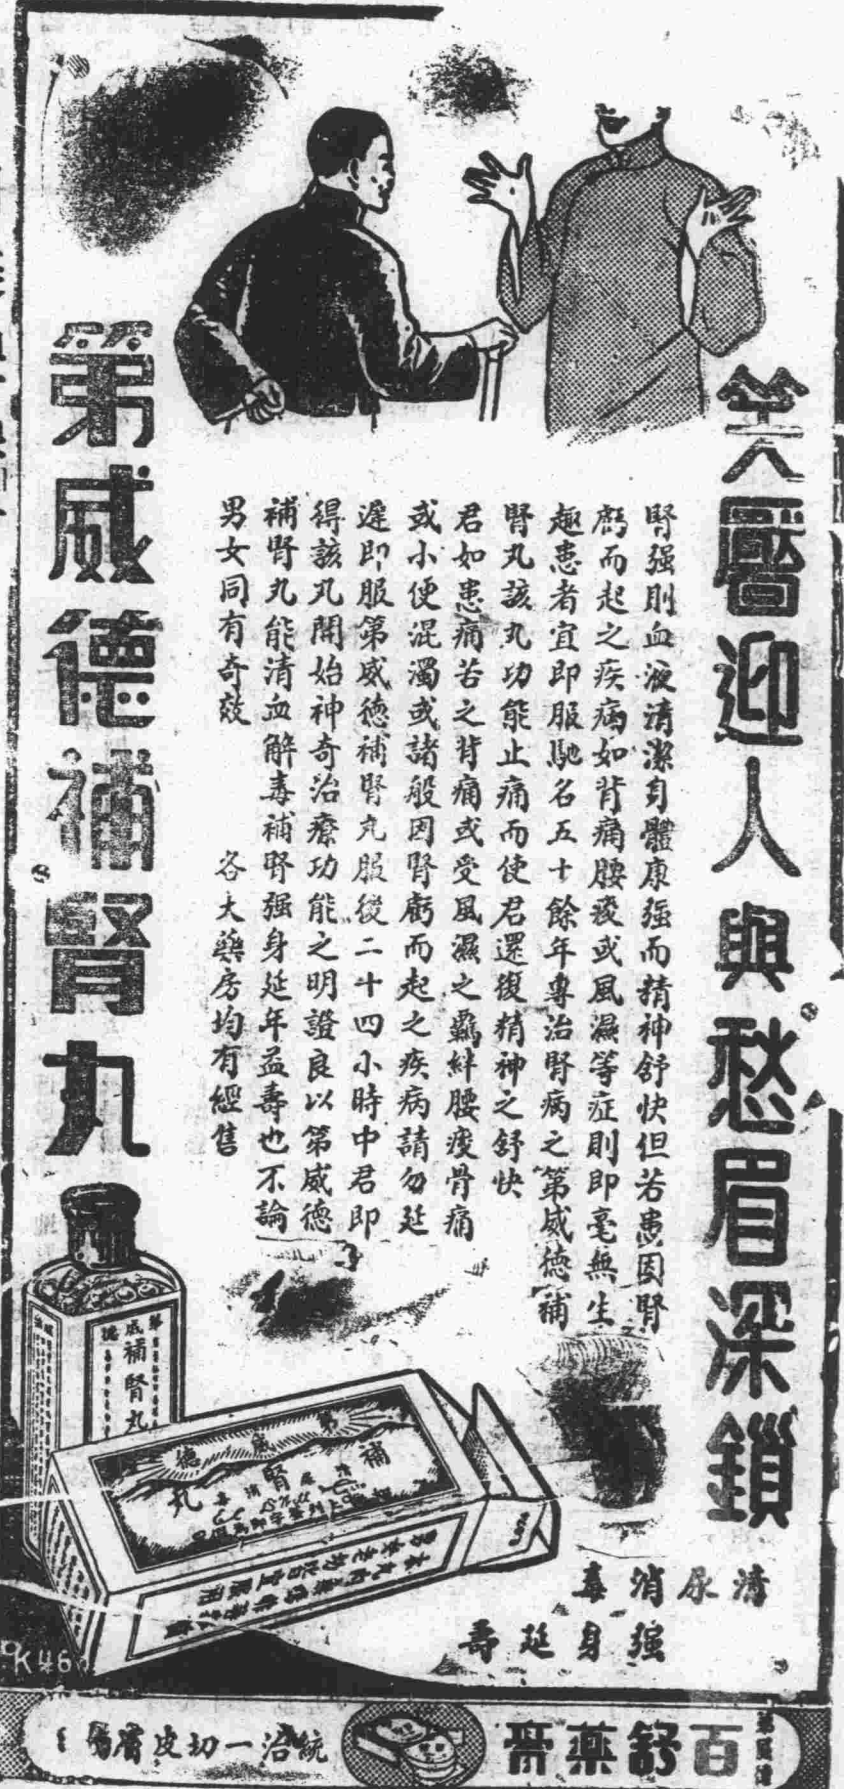 笑靨迎人與愁眉深鎖
腎强則血液清潔身體康强而精神舒快但若患因腎
虧而起之疾病如背痛腰痠或風濕等症則即毫無生
趣患者宜即服馳名五十餘年專治腎病之第威德補
腎丸該丸功能止痛而使君還復精神之舒快
君如患痛苦之背痛或受風濕之羈絆腰痠骨痛
或小便混濁或諸般因腎虧而起之疾病請勿延
遲即服第威德補腎丸服後二十四小時中君即
得該丸開始神奇治療功能之明證良以第威德
補腎丸能清血解毒補腎强身延年益壽也不論
男女同有奇效 各大藥房均有經售
第威德補腎丸
清尿消毒
强身延壽
第威德
補腎丸
第威德
補腎丸
K46
百舒藥膏
統治一切皮膚